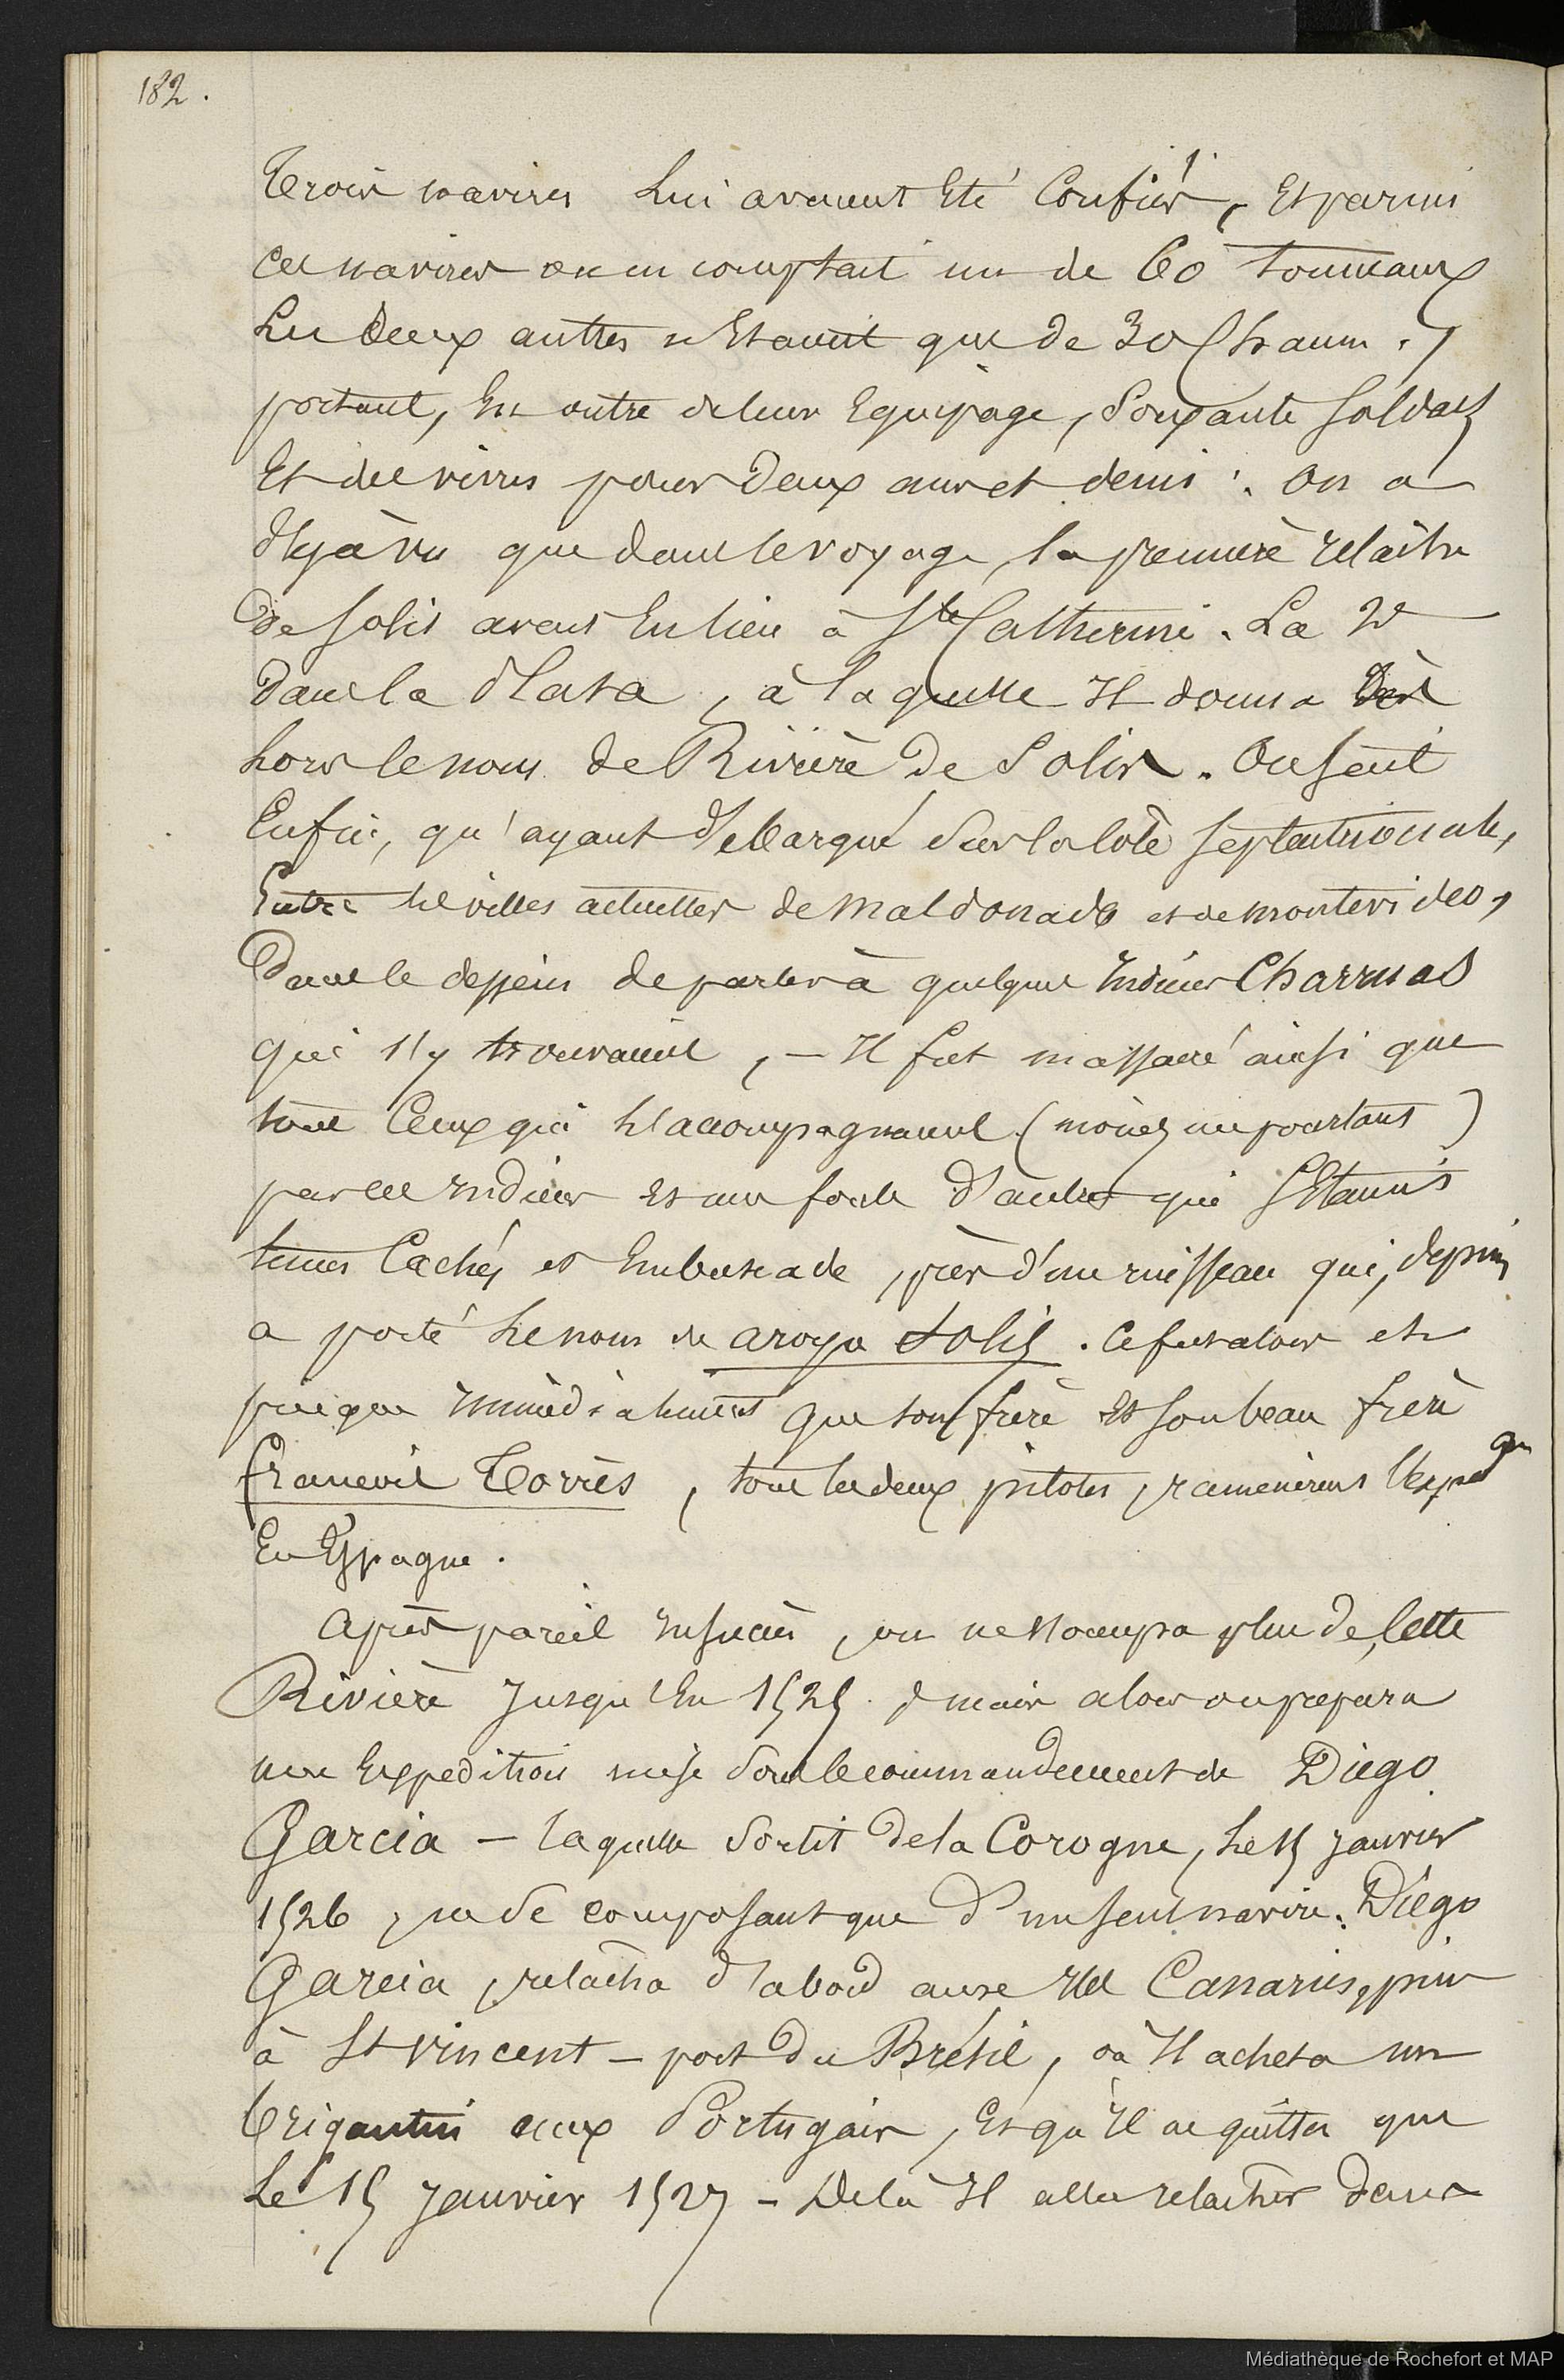 182.
Trois navires Lui avaient Eté Confiés, Et parmi
ces navires on en comptait un de 60 tonneaux
Les deux autres n'Etaient que de 30 Chacun,
portant, En outre de leur Equipage, Soixante Soldats
Et des vivres pour Deux ans et demi : On a
déjà vu que dans le voyage, la première relâche
de Solis avait Eu lieu à Ste Catherine. La 2e
Dans la Plata, à laquelle Il donna Dès
lors le nom de Rivière de Solis. On sait
Enfin, qu'ayant débarqué Sur la Côte Septentrionale,
Entre les villes actuelles de Maldonado et de montevideo,
Dans le dessein de parler à quelques Indiens Charruas
qui s'y trouvaient, – Il fut massacré ainsi que
tous Ceux qui l'accompagnaient (moins un pourtant)
par ces Indiens Et une foule d'autres qui s'Etaient
tenus Cachés et Embuscade, près d'un ruisseau qui, depuis
a porté le nom de aroyo Solis. Ce fut alors et
presque immédiatement que son frère Et son beau frère
francois Torrès, tous les deux pilotes, ramenèrent l'Expedon
En Espagne.
Après pareil Insuccès, on ne s'occupa plus de cette
Rivière Jusqu'En 1525. mais alors on prepara
une Expedition mise Sous le commandement de Diego
Garcia – laquelle Sortit de la Corogne, le 15 Janvier
1526, ne Se composant que d'un seul navire. Diégo
Garcia, relâcha d'abord aux Iles Canaries, puis
à St Vincent – port du Brésil, où Il acheta un
brigantin aux Portugais, Et qu'Il ne quitta que
Le 15 Janvier 1527 – De là Il alla relacher dans
Médiathèque de Rochefort et MAP